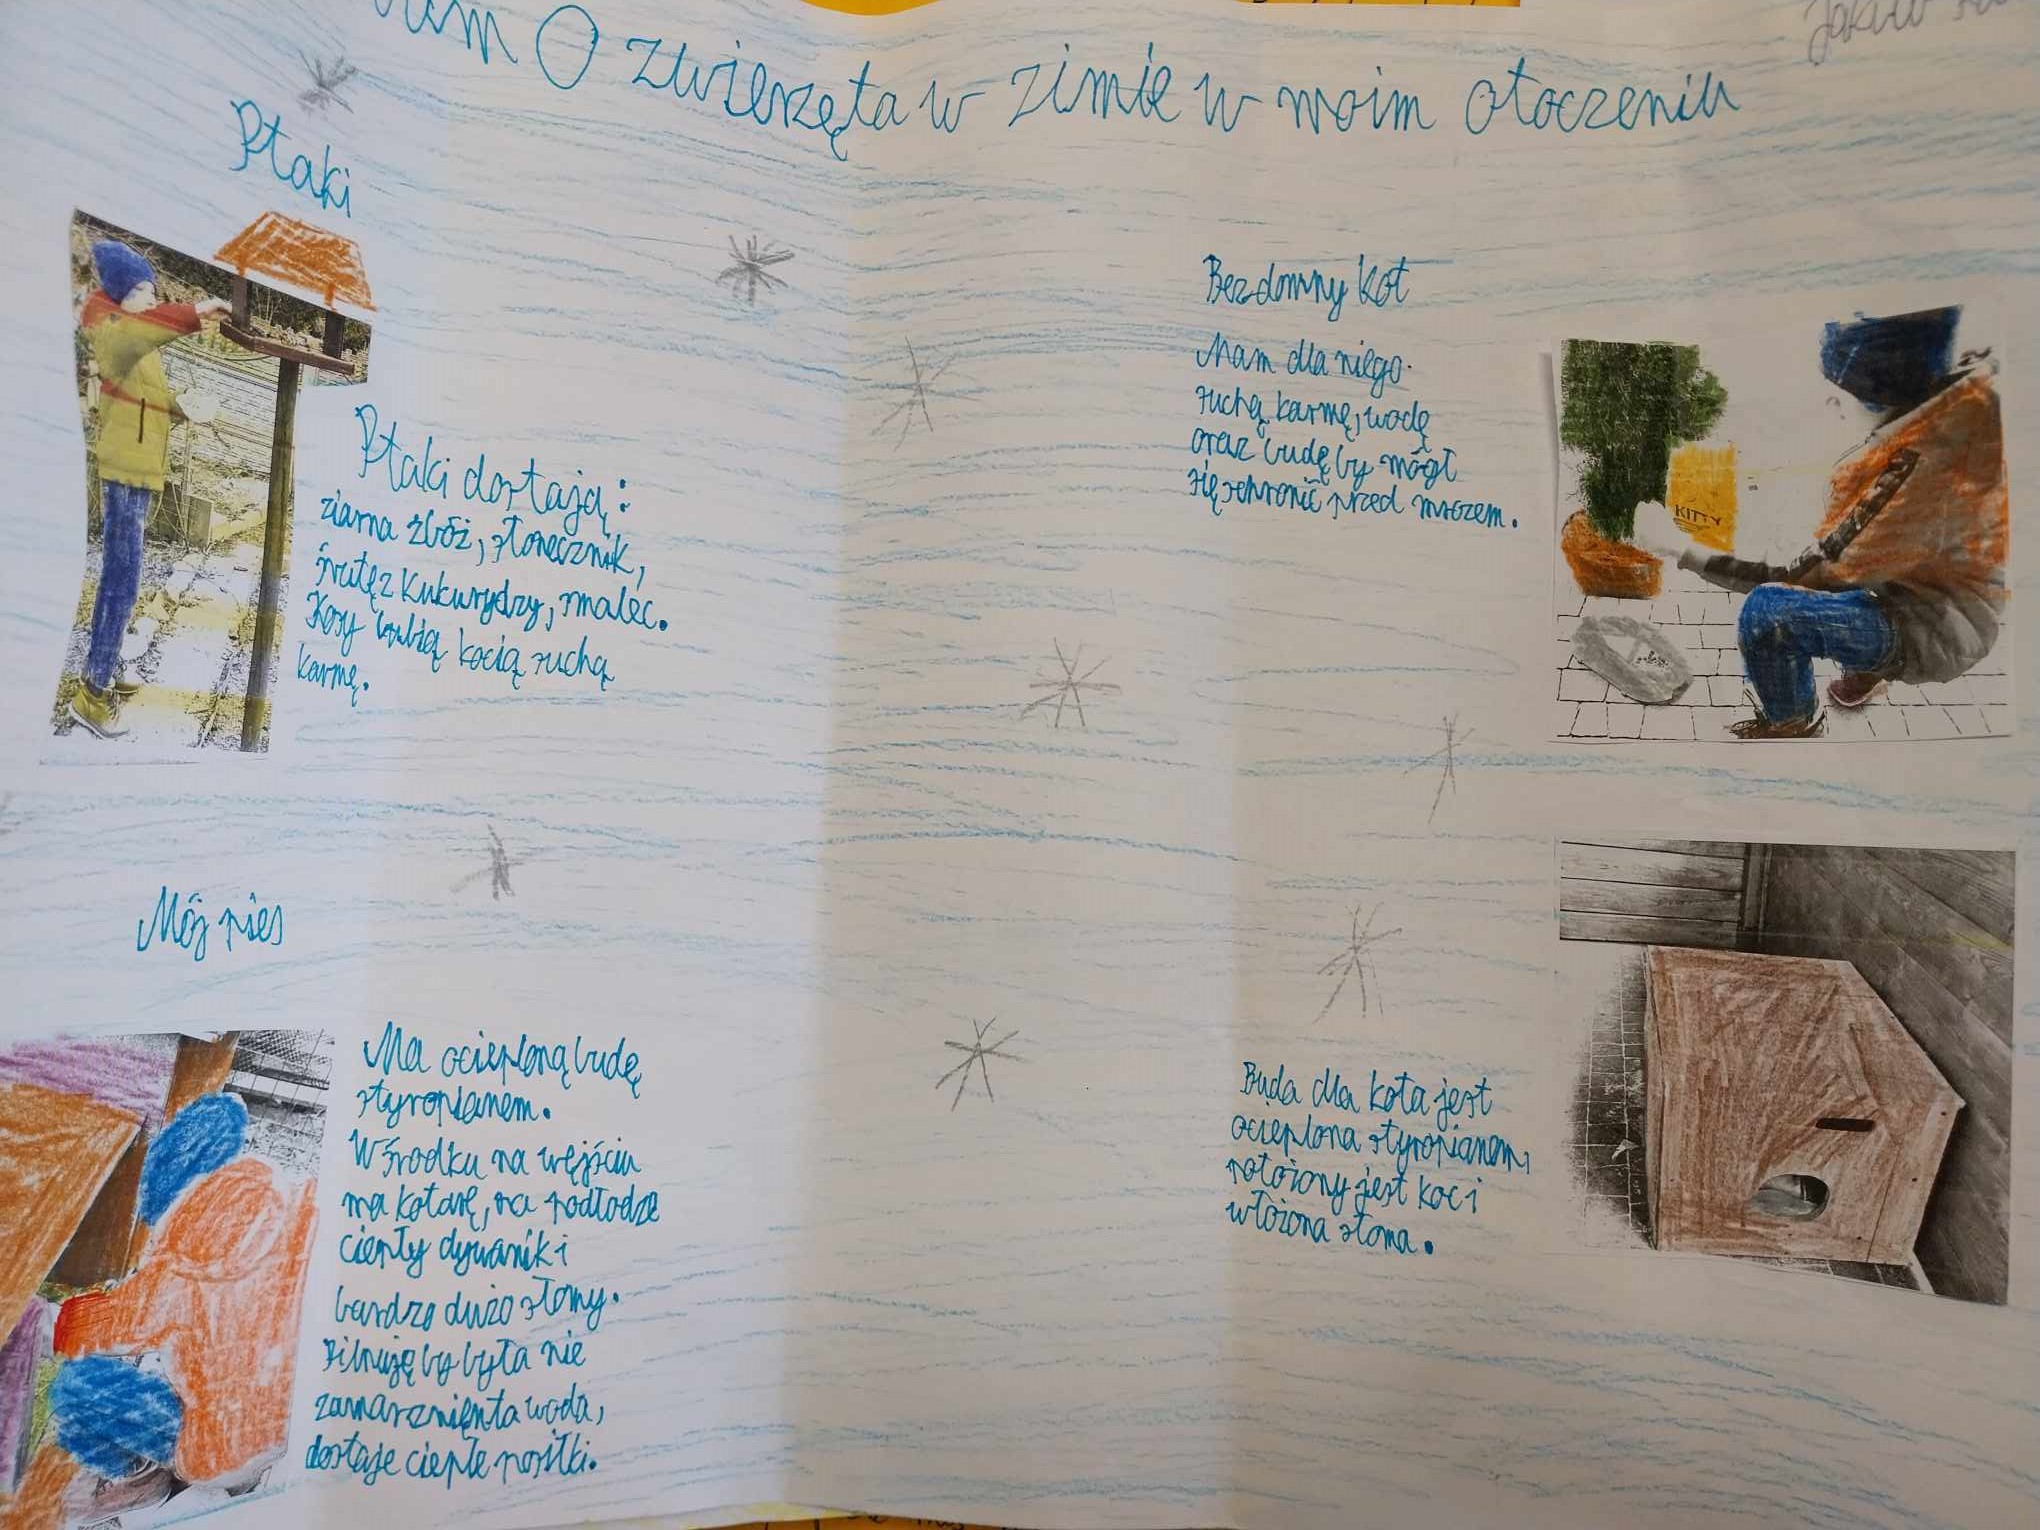 O zwierzęta w zimie w moim otoczeniu
Ptaki
Ptaki dostają:
ziarna zbóż, słonecznik,
śrutę z kukurydzy, smalec.
Kosy lubią kocią suchą
karmę.
Bezdomny kot
Mam dla niego
suchą karmę, wodę
oraz budę by mógł
się schronić przed mrozem.
KITTY
Mój pies
Ma ocieploną budę
styropianem.
W środku na wejściu
ma kotarę, na podłodze
ciepły dywanik i
bardzo dużo słomy.
Pilnuję by była nie
zamarznięnta woda,
dostaje ciepłe posiłki.
Buda dla kota jest
ocieplona styropianem,
położony jest koc i
włożona słoma.